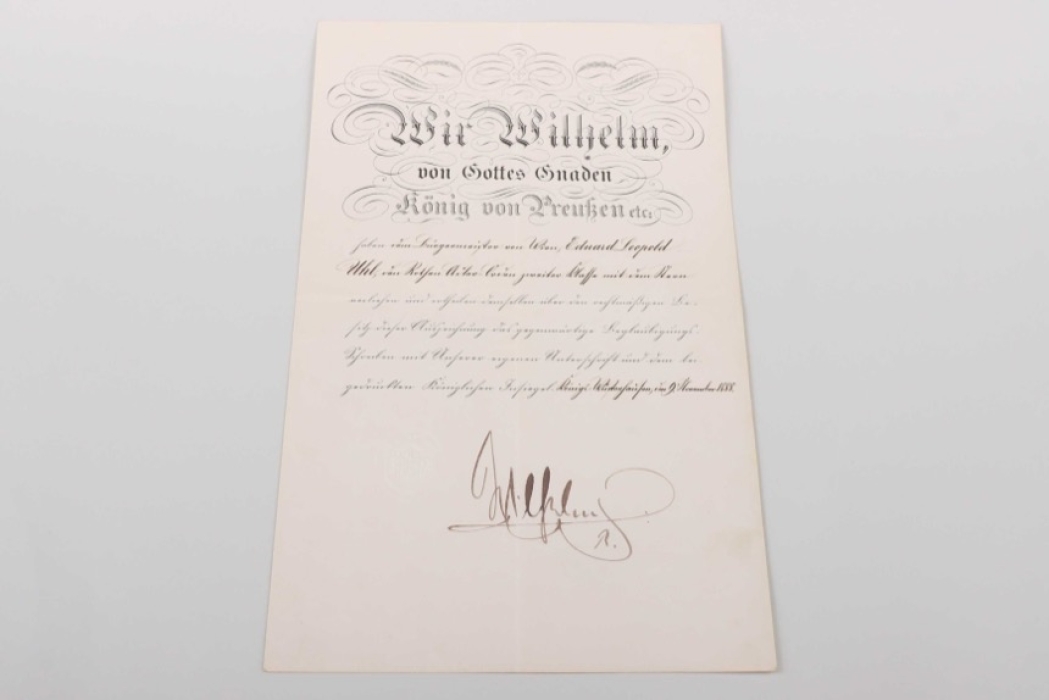 Wir Wilhelm,
von Gottes Gnaden
König von Preußen etc:
haben dem Bürgermeister von Wien, Eduard Leopold
Uhl, den Rothen Adler-Orden zweiter Klasse mit dem Stern
verliehen und ertheilen demselben über den rechtmäßigen Be-
sitz dieser Auszeichnung das gegenwärtige Beglaubigungs-
Schreiben mit Unserer eigenen Unterschrift und dem bei-
gedruckten Königlichen Insiegel. Königs-Wusterhausen, den 9. November 1888.
Wilhelm
R.